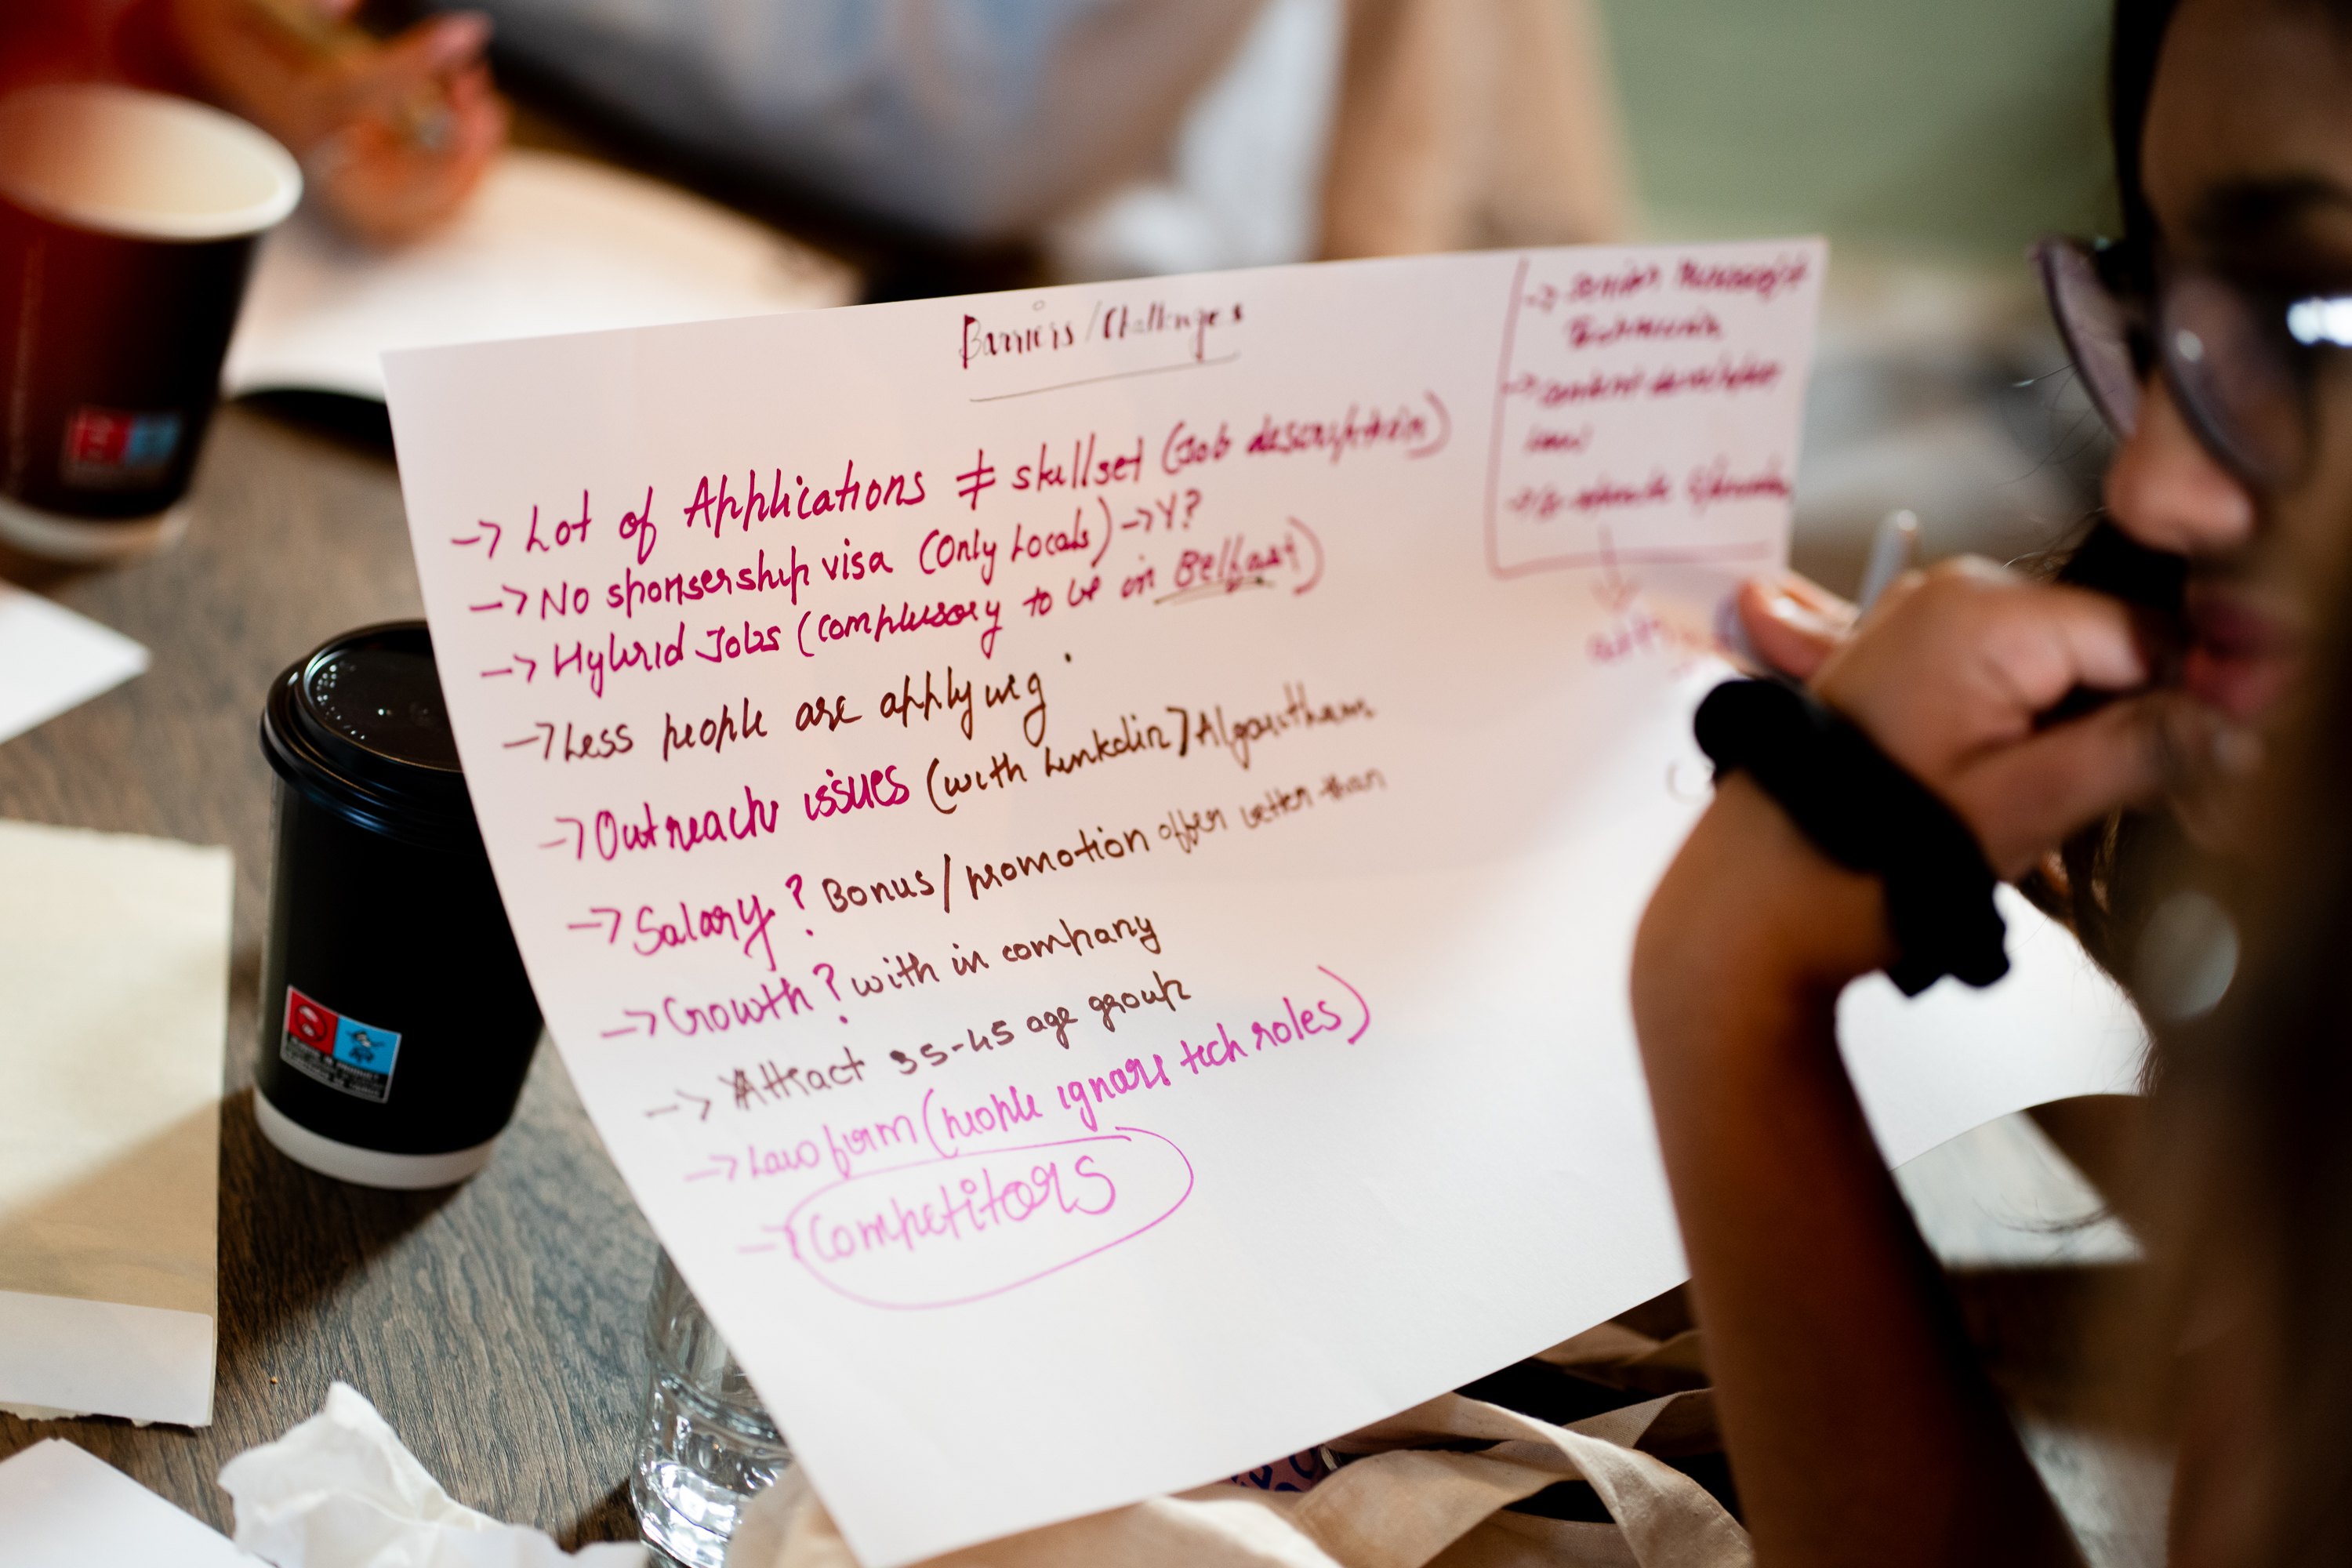 Barriers/Challenges
-> Lot of Applications ≠ skillset (Job description)
-> No sponsership visa (Only Locals) -> Y?
-> Hybrid Jobs (complusory to be in Belfast)
-> Less people are applying
-> Outreach issues (with Linkdin) Algorithams
-> Salary? Bonus/promotion offer better than
-> Growth? with in company
-> Attract 35-45 age group
-> Law firm (people ignore tech roles)
-> Competitors
-> senior